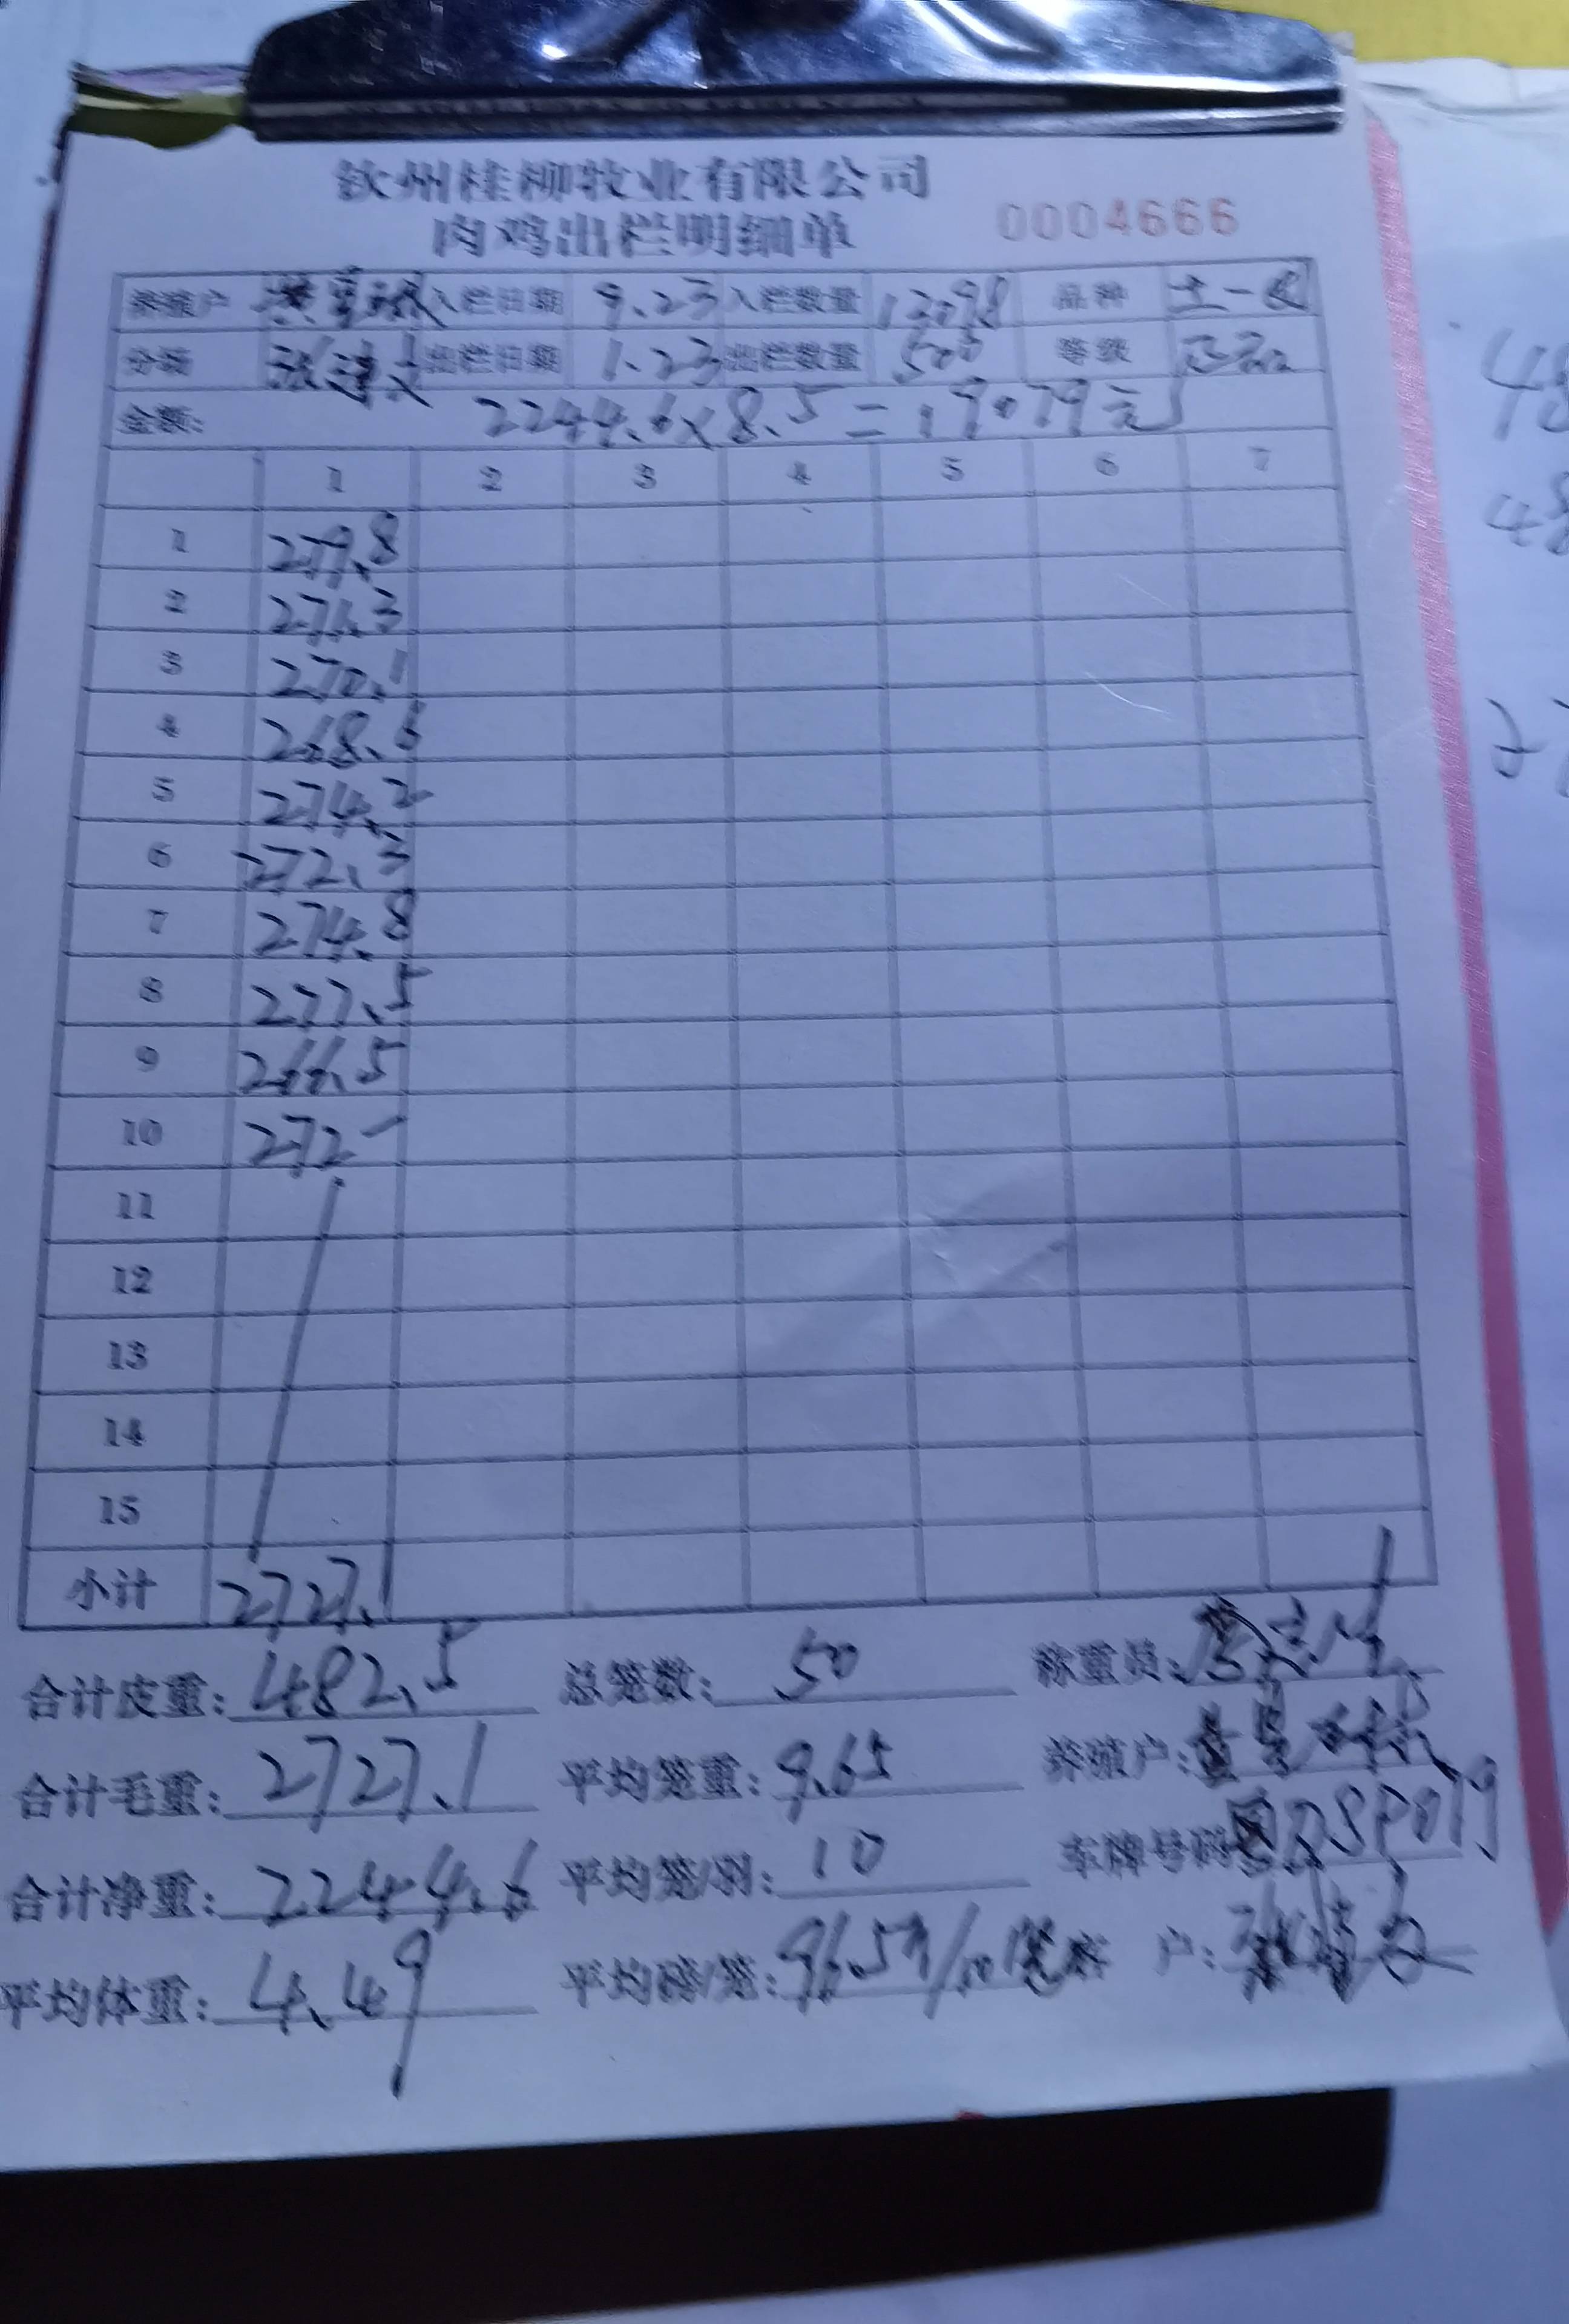 钦州桂柳牧业有限公司
肉鸡出栏明细单 0004666
养殖户 入栏日期 9.23 入栏数量 12098 品种 土一
分场 出栏日期 1.23 出栏数量 500 等级 正品
金额: 2244.6×8.5=19079元
1 2 3 4 5 6 7
1 279.8
2 271.3
3 270.1
4 268.6
5 274.2
6 272.3
7 274.8
8 277.5
9 266.5
10 272-
11
12
13
14
15
小计 2727.1
合计皮重: 482.5 总笼数: 50 称重员:
合计毛重: 2727.1 平均笼重: 9.65 养殖户:
合计净重: 2244.6 平均笼/羽: 10 车牌号码
平均体重: 4.49 平均磅/笼: 96.5斤/10笼 客 户:
48
48
27